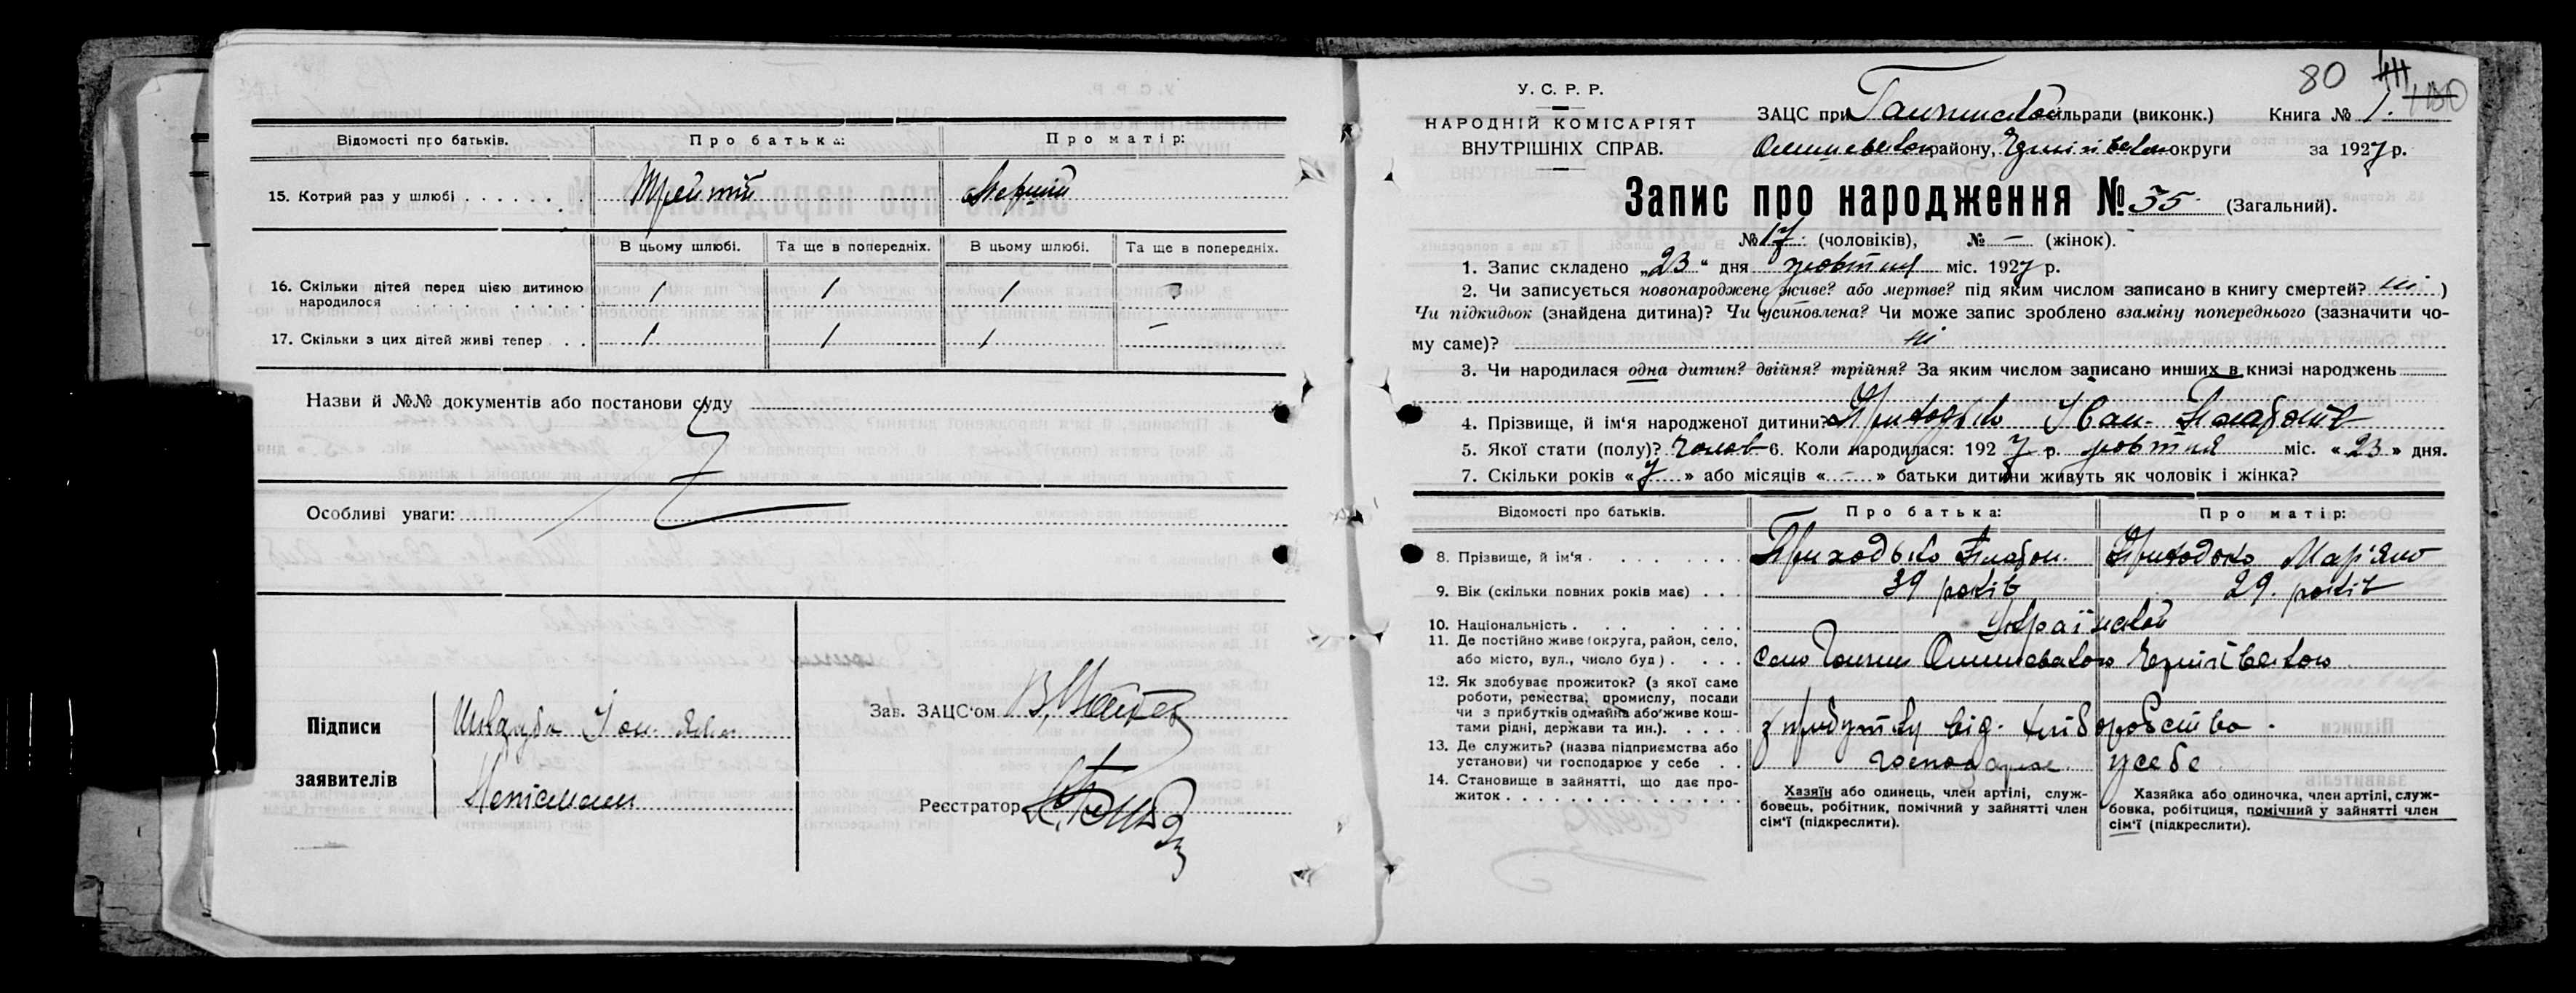 Відомості про батьків. Про батька: Про матір:
15. Котрий раз у шлюбі Третій Перший
В цьому шлюбі. Та ще в попередніх. В цьому шлюбі. Та ще в попередніх.
16. Скільки дітей перед цією дитиною
народилося 1 1 1 –
17. Скільки з цих дітей живі тепер 1 1 1 –
Назви й №№ документів або постанови суду
Особливі уваги:
Підписи
заявителів
Зав. ЗАЦС'ом
Реєстратор
80
У. С. Р. Р.
НАРОДНІЙ КОМІСАРІЯТ
ВНУТРІШНІХ СПРАВ.
ЗАЦС при сільради (виконк.) Книга № 1.
району, округи за 1927 р.
Запис про народження № 35. (Загальний).
№ 17 (чоловіків), № – (жінок).
1. Запис складено „23“ дня жовтня міс. 1927 р.
2. Чи записується новонароджене живе? або мертве? під яким числом записано в книгу смертей? ні )
Чи підкидьок (знайдена дитина)? Чи усиновлена? Чи може запис зроблено взаміну попереднього (зазначити чо-
му саме)? ні
3. Чи народилася одна дитин? двійня? трійня? За яким числом записано инших в книзі народжень
4. Прізвище, й ім'я народженої дитини? Приходько Іван
5. Якої стати (полу)? Чолов 6. Коли народилася: 1927 р. жовтня міс. «23» дня.
7. Скільки років «7» або місяців «–» батьки дитини живуть як чоловік і жінка?
Відомості про батьків. Про батька: Про матір:
8. Прізвище, й ім'я Приходько Платон. Приходько Мар'яна
9. Вік (скільки повних років має) 39 років 29. років
10. Національність Української
11. Де постійно живе (округа, район, село,
або місто, вул., число буд) село
12. Як здобуває прожиток? (з якої саме
роботи, ремества, промислу, посади
чи з прибутків одмайна або живе кош-
тами рідні, держави та ин.). з прибутку від хліборобства.
13. Де служить? (назва підприємства або
установи) чи господарює у себе Господарює у себе
14. Становище в зайнятті, що дає про-
житок
Хазяїн або одинець, член артілі, служ-
бовець, робітник, помічний у зайнятті член
сім'ї (підкреслити).
Хазяйка або одиночка, член артілі, служ-
бовка, робітциця, помічний у зайнятті член
сім'ї (підкреслити).